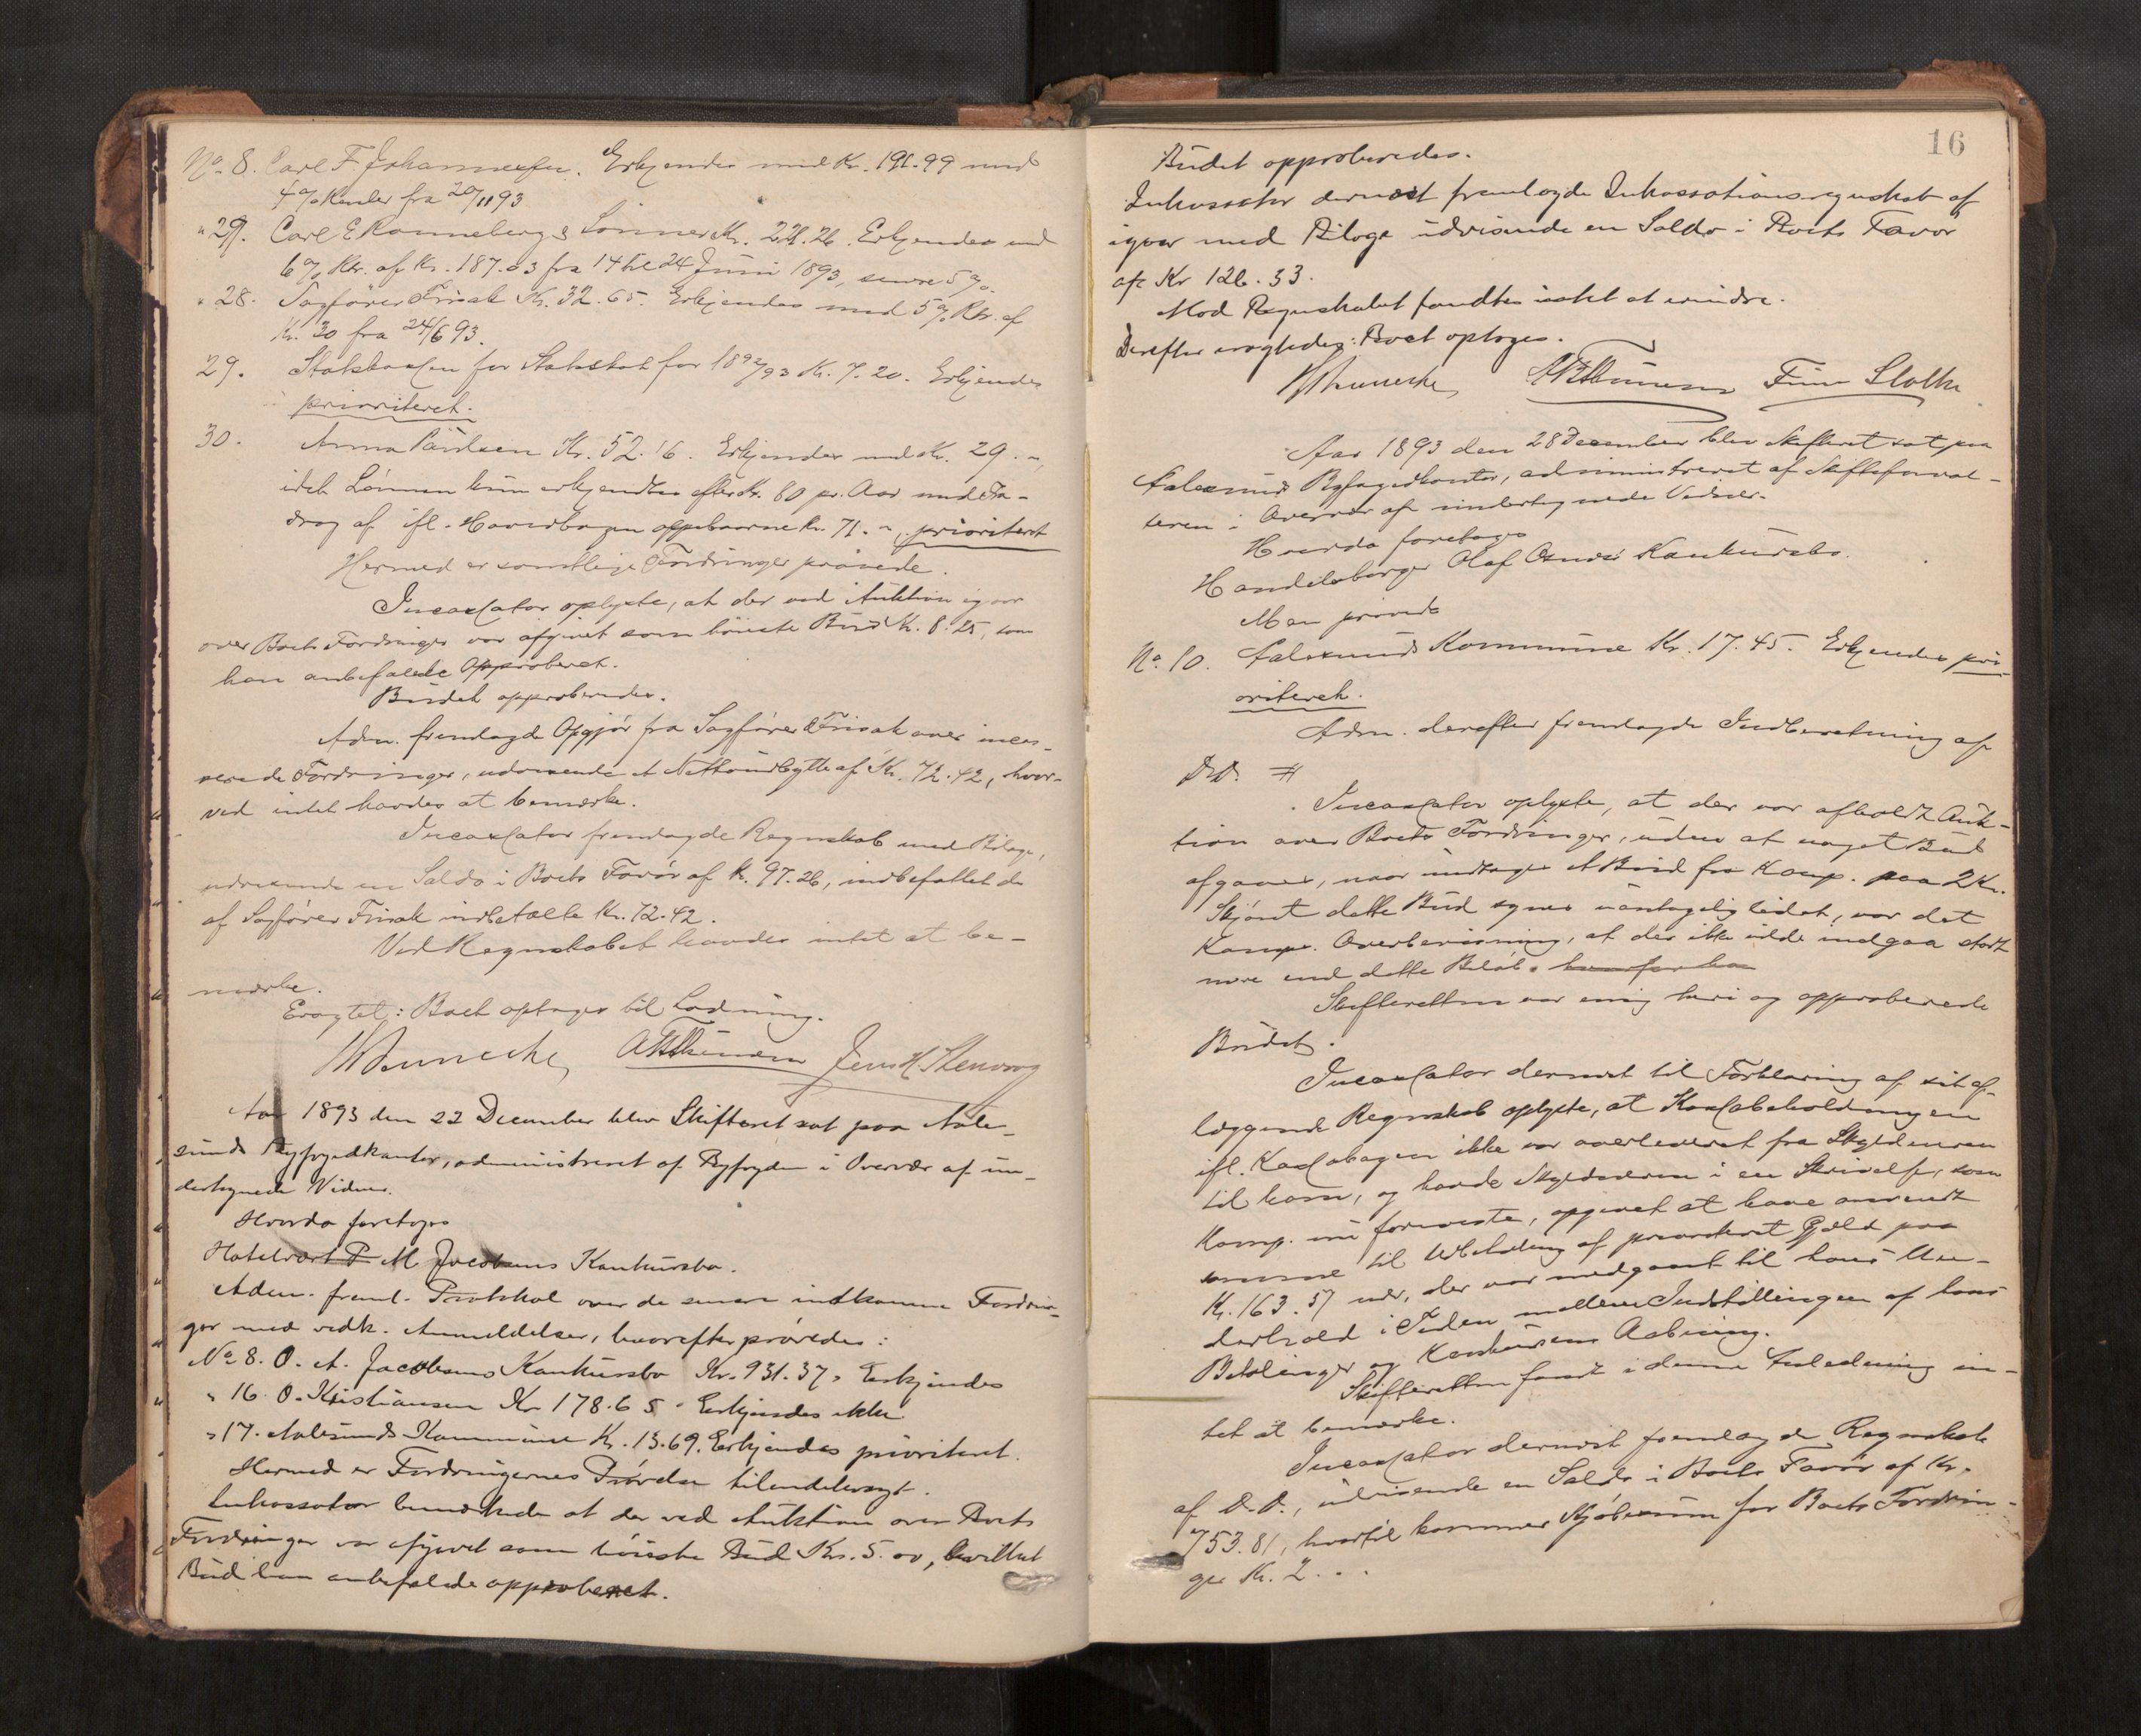 No. 8. Carl F Johannessen. Erkjendes med Kr. 191.99 med
4 % Renter fra 20/11 93
" 27. Carl E Rønneberg & Sønner Kr. 228.26. Erkjendes med
6 % Rtr. af Kr. 187.03 fra 14 til 24 Juni 1893, senere 5 %.
" 28. Sagfører Frisak Kr. 32.65. Erkjendes med 5 % Rtr. af
Kr. 30 fra 24/6 93.
29. Statskassen for Statskat for 1892/93 Kr. 7.20. Erkjendes
prioriteret.
30. Anna Paulsen Kr. 52.16. Erkjendes med Kr. 29. –,
idet Lønnen kun erkjendtes efter Kr. 80 pr. Aar med Fra-
drag af ifl. Hovedbogen oppebaarne Kr. 71. –, prioritert
Hermed er samtlige Fordringer prøvede.
Incassator oplyste, at der ved Auktion igaar
over Boets Fordringer var afgivet som høieste Bud Kr. 8.25, som
han anbefalede Approberet.
Budet approberedes.
Adm. fremlagde Opgjør fra Sagfører Frisak over incas-
serede Fordringer, udvisende et Nettoudbytte af Kr. 72.42, hvor-
ved intet havdes at bemærke.
Incassator fremlagde Regnskab med Bilage,
udvisende en Saldo i Boets Favør af Kr. 97.26, indbefattet de
af Sagfører Frisak indbetalte Kr. 72.42.
Ved Regnskabet havdes intet at be-
mærke.
Eragtet: Boet optages til Lodning.
Jens H. Stenvaag
Aar 1893 den 22 December blev Skifteret sat paa Aale-
sunds Byfogedkontor, administreret af Byfogden i Overvær af un-
dertegnede Vidner.
Hvorda foretoges
Hotelvært P M Jacobsens Konkursbo.
Adm. freml. Protokol over de senere indkomne Fordrin-
ger med vedk. Anmeldelser, hvorefter prøvedes:
No 8. O. A. Jacobsens Konkursbo Kr. 931.37. Erkjendes
" 16 O. Kristiansen Kr 178.65. Erkjendes ikke
" 17. Aalesunds Kommune Kr. 13.69. Erkjendes prioriteret.
Hermed er Fordringernes Prøvelse tilendebragt.
Inkassator bemærkede at der ved Auktion over Boets
Fordringer var afgivet som høieste Bud Kr. 5.00, hvilket
Bud han anbefalede approberet.
16
Budet approberedes.
Inkassator dernæst fremlagde Inkassationsregnskab af
igaar med Bilage udvisende en Saldo i Boets Favør
af Kr 126.33.
Mod Regnskabet fandtes intet at erindre.
Derefter eragtedes: Boet optoges.
Aar 1893 den 28 December blev Skifteret sat paa
Aalesunds Byfogedkontor, administreret af Skifteforval-
teren i Overvær af undertegnede Vidner.
Hvorda foretoges
Handelsborger Olaf Konkursbo.
Man prøvede
No. 10. Aalesunds Kommune Kr. 17.45. Erkjendes pri-
oriteret.
Adm. derefter fremlagde Indberetning af
D.D. #
Incassator oplyste, at der var afholdt Auk-
tion over Boets Fordringer, uden at noget Bud
afgaves, naar undtages et Bud fra Komp. paa 2 Kr.
Skjønt dette Bud synes uantagelig lidet, var det
Komp. Overbevisning, at der ikke vilde indgaa stort
mere end dette Beløb. hvorfor han
Skifteretten var enig heri og approberede
Budet.
Incassator dernæst til Forklaring af sit af-
læggende Regnskab oplyste, at Kassabeholdningen
ifl. Kassabogen ikke var overleveret fra Skyldneren
til ham, og havde Skyldneren i en Skrivelse, som
Komp. nu foreviste, opgivet at have anvendt
samme til Udbetaling af prioriteret Gjæld paa
Kr. 163.57 der var medgaaet til hans Un-
derhold i Tiden mellem Indstillingen af hans
Betalinger og Konkursens Aabning.
Skifteretten fandt i denne Anledning in-
tet at bemærke.
Incassator dernæst fremlagde Regnskab
af D.D., udvisende en Saldo i Boets Favør af Kr.
753.81, hvortil kommer Kjøbesum for Boets Fordrin-
ger Kr. 2. . .